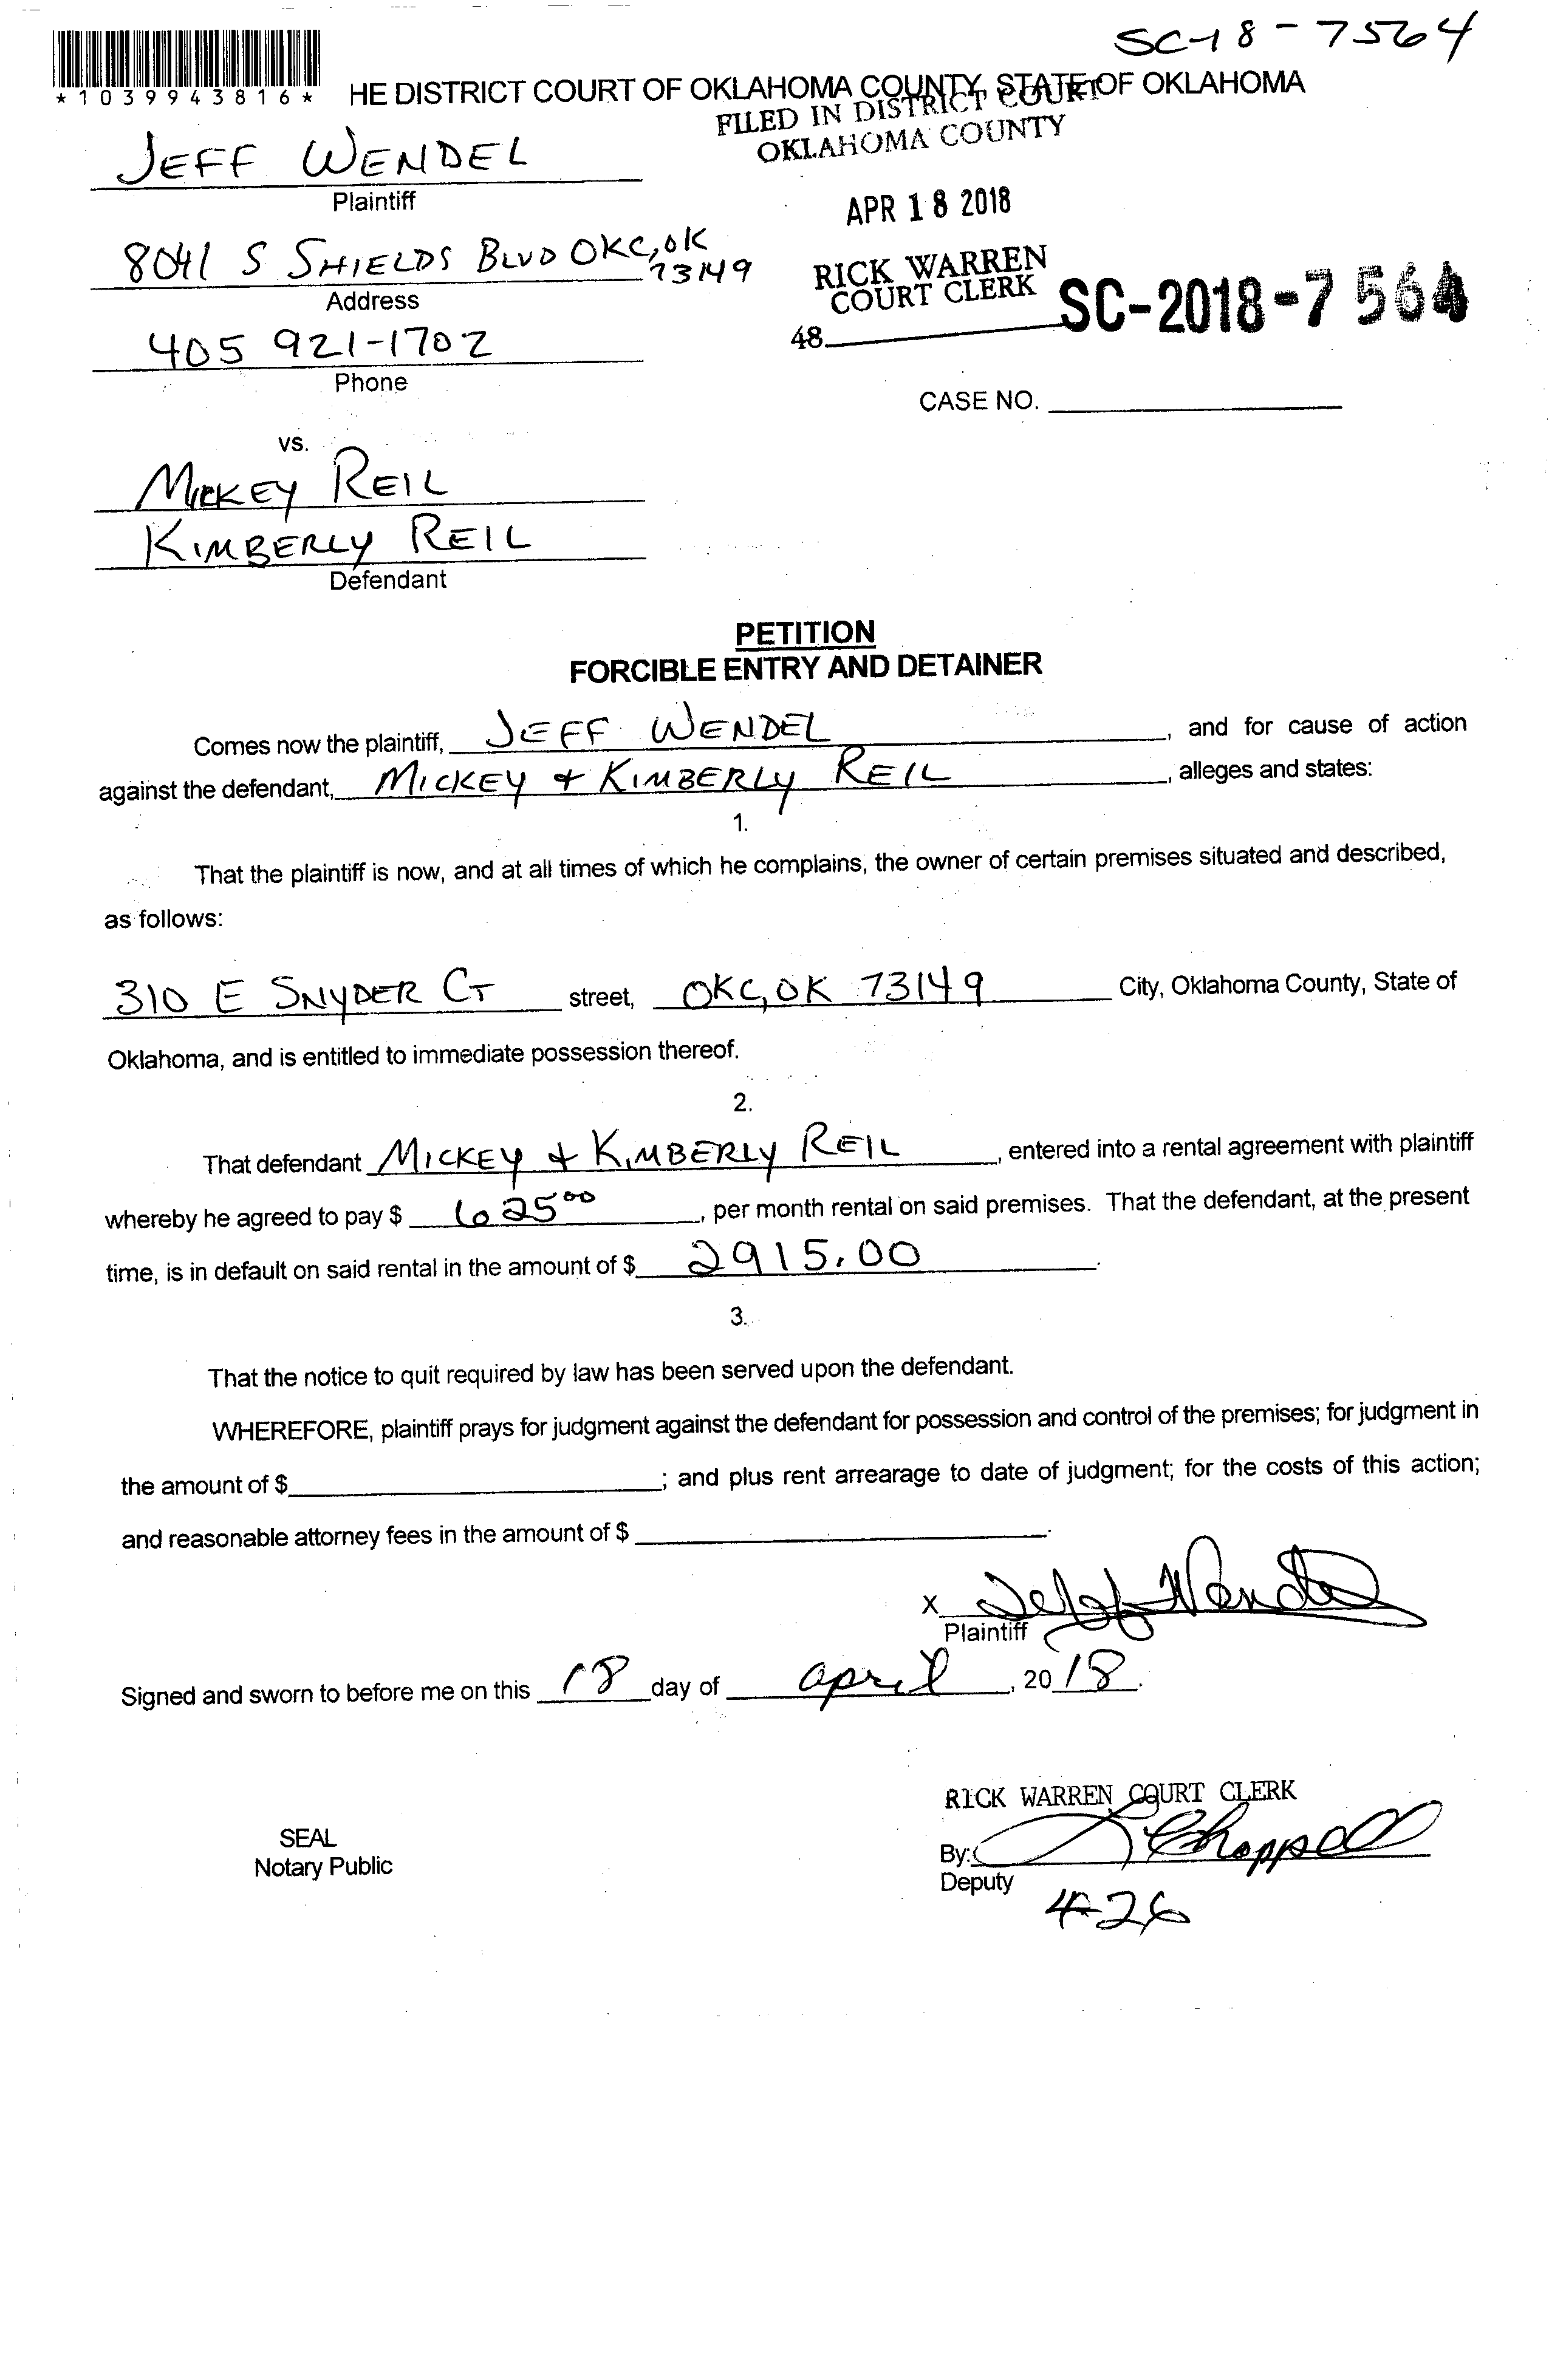 SC-18-7564
*1039943816*
HE DISTRICT COURT OF OKLAHOMA COUNTY, STATE OF OKLAHOMA
FILED IN DISTRICT COURT
OKLAHOMA COUNTY
JEFF WENDEL
Plaintiff
APR 18 2018
8041 S SHIELDS BLVD OKC, OK
73149
Address
RICK WARREN
COURT CLERK
SC-2018-7564
48
405 921-1702
Phone
CASE NO.
vs.
MICKEY REIL
KIMBERLY REIL
Defendant
PETITION
FORCIBLE ENTRY AND DETAINER
Comes now the plaintiff, JEFF WENDEL, and for cause of action
against the defendant, MICKEY & KIMBERLY REIL, alleges and states:
1.
That the plaintiff is now, and at all times of which he complains, the owner of certain premises situated and described,
as follows:
310 E SNYDER CT street, OKC, OK 73149 City, Oklahoma County, State of
Oklahoma, and is entitled to immediate possession thereof.
2.
That defendant MICKEY & KIMBERLY REIL, entered into a rental agreement with plaintiff
whereby he agreed to pay $ 625 00, per month rental on said premises. That the defendant, at the present
time, is in default on said rental in the amount of $ 2915.00.
3.
That the notice to quit required by law has been served upon the defendant.
WHEREFORE, plaintiff prays for judgment against the defendant for possession and control of the premises; for judgment in
the amount of $ ; and plus rent arrearage to date of judgment; for the costs of this action;
and reasonable attorney fees in the amount of $ .
X Jeff Wendel
Plaintiff
Signed and sworn to before me on this 18 day of april, 2018.
RICK WARREN COURT CLERK
SEAL
Notary Public
By: Chappell
Deputy
4-26